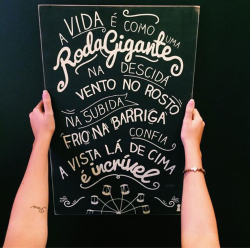 A VIDA É COMO UMA
Roda Gigante
NA DESCIDA
VENTO NO ROSTO
NA SUBIDA
FRIO NA BARRIGA
CONFIA
A VISTA LÁ DE CIMA
é incrível